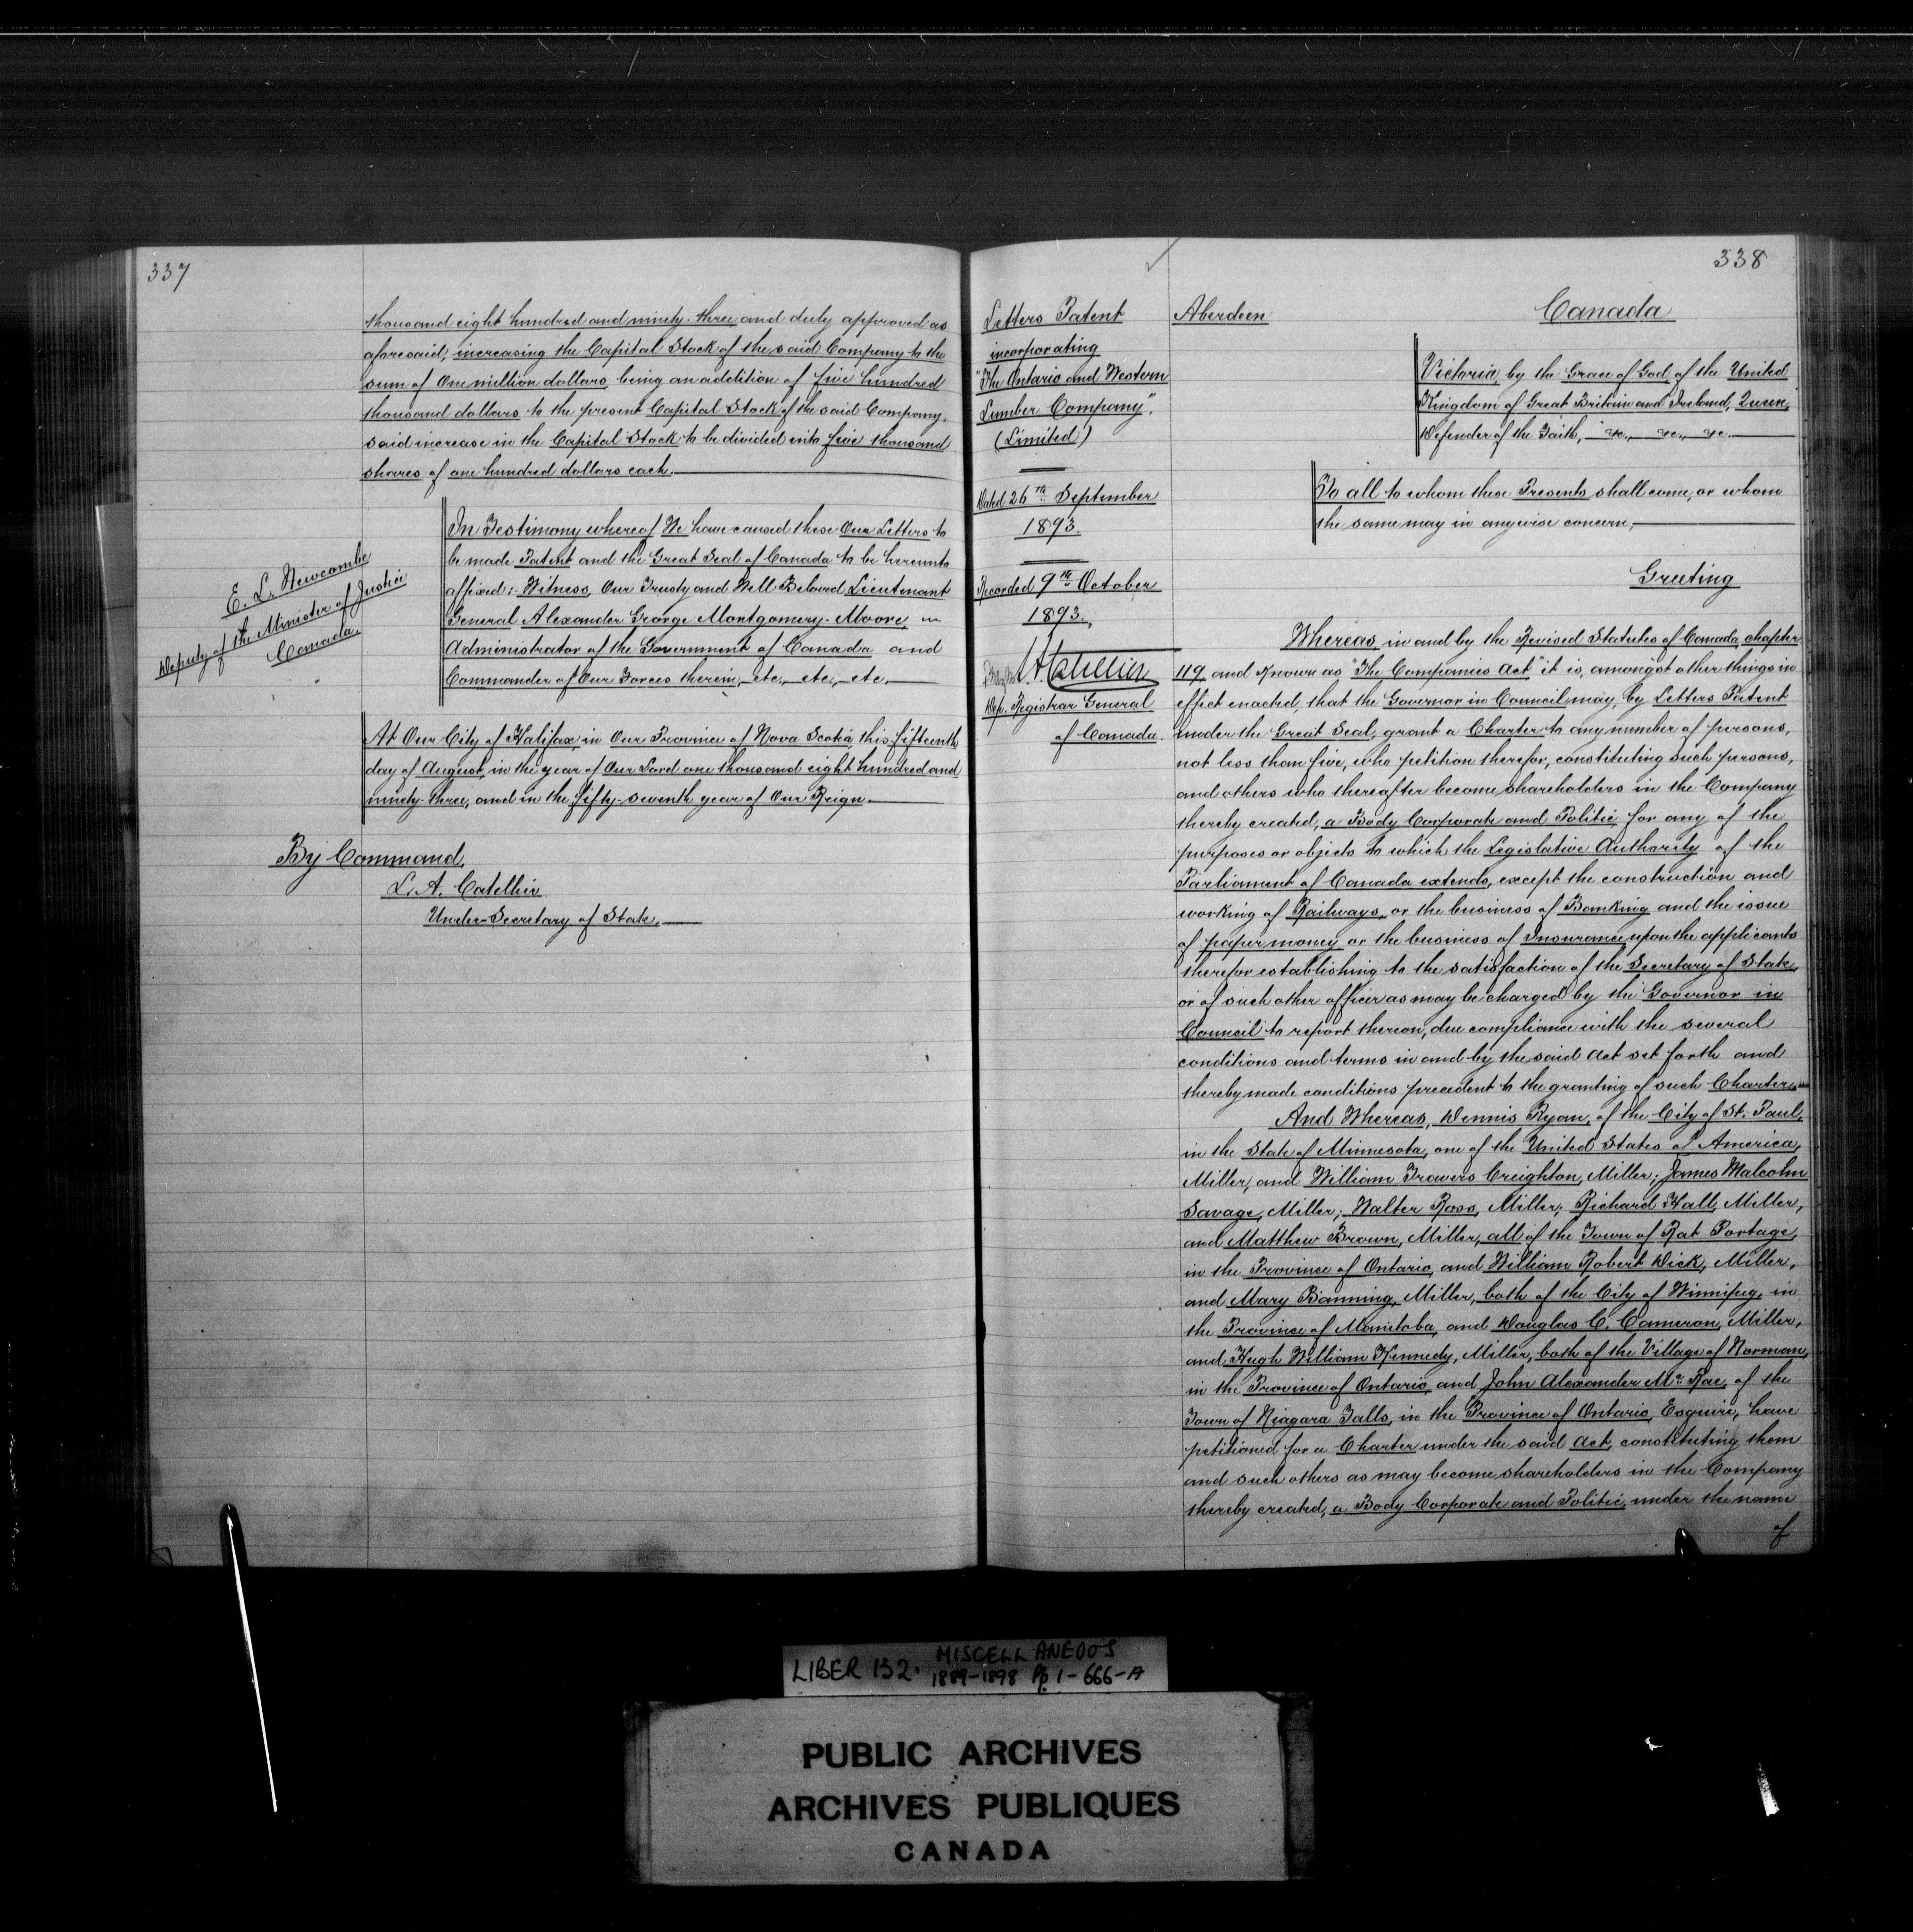 337
thousand eight hundred and ninety-three and duly approved as
aforesaid, increasing the Capital Stock of the said Company to the
sum of One million dollars being an addition of five hundred
thousand dollars to the present Capital Stock of the said Company,
said increase in the Capital Stock to be divided into five thousand
shares of one hundred dollars each.
In Testimony whereof We have caused these Our Letters to
be made Patent and the Great Seal of Canada to be hereunto
affixed:- Witness, Our Trusty and Well Beloved Lieutenant
General Alexander George Montgomery-Moore,
Administrator of the Government of Canada and
Commander of Our Forces therein, etc., etc., etc.
E. L. Newcombe
Deputy of the Minister of Justice
Canada.
At Our City of Halifax, in Our Province of Nova Scotia, this fifteenth
day of August, in the year of Our Lord one thousand eight hundred and
ninety-three, and in the fifty-seventh year of Our Reign.
By Command,
L. A. Catellier
Under-Secretary of State.
338
Letters Patent
incorporating
"The Ontario and Western
Lumber Company".
(Limited)
Dated 26th September
1893.
Recorded 9th October
1893.
L A Catellier
Dep. Registrar General
of Canada.
Aberdeen
Canada
Victoria, by the Grace of God, of the United
Kingdom of Great Britain and Ireland, Queen,
Defender of the Faith, &c., &c., &c.
To all to whom these Presents shall come, or whom
the same may in anywise concern,
Greeting
Whereas, in and by the Revised Statutes of Canada, chapter
119, and Known as "The Companies Act" it is, amongst other things in
effect enacted, that the Governor in Council may, by Letters Patent
under the Great Seal, grant a Charter to any number of persons,
not less than five, who petition therefor, constituting such persons,
and others who thereafter become shareholders in the Company
thereby created, a Body Corporate and Politic for any of the
purposes or objects to which the Legislative Authority of the
Parliament of Canada extends, except the construction and
working of Railways, or the business of Banking and the issue
of paper money or the business of Insurance, upon the applicants
therefor establishing to the satisfaction of the Secretary of State,
or of such other officer as may be charged by the Governor in
Council to report thereon, due compliance with the several
conditions and terms in and by the said Act set forth and
thereby made conditions precedent to the granting of such Charter.
And Whereas, Dennis Ryan, of the City of St. Paul,
in the State of Minnesota, one of the United States of America,
Miller, and William Travers Creighton, Miller; James Malcolm
Savage, Miller; Walter Ross, Miller; Richard Hall, Miller,
and Matthew Brown, Miller, all of the Town of Rat Portage,
in the Province of Ontario, and William Robert Dick, Miller,
and Mary Banning, Miller, both of the City of Winnipeg, in
the Province of Manitoba, and Douglas C. Cameron, Miller,
and Hugh William Kennedy, Miller, both of the Village of Norman,
in the Province of Ontario, and John Alexander McRae, of the
Town of Niagara Falls, in the Province of Ontario, Esquire, have
petitioned for a Charter under the said Act, constituting them
and such others as may become shareholders in the Company
thereby created, a Body Corporate and Politic, under the name
of
LIBER 132. MISCELLANEOUS
1889-1898 Pp 1-666-A
PUBLIC ARCHIVES
ARCHIVES PUBLIQUES
CANADA